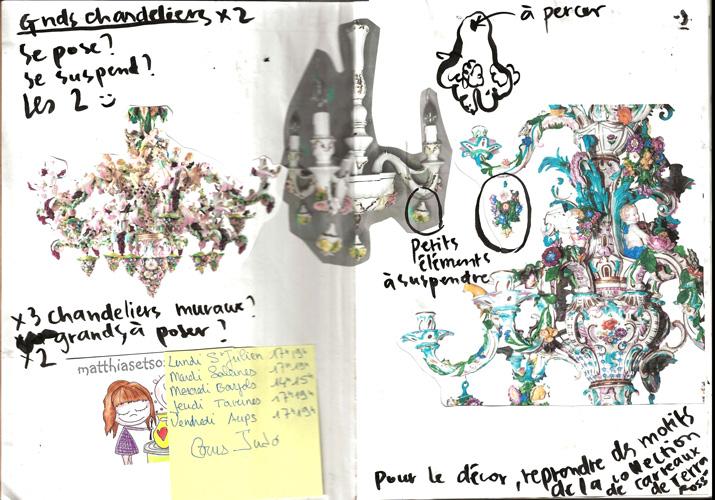 Gnds chandeliers x2
Se pose?
Se suspend?
Les 2
à percer
Petits
éléments
à suspendre
x3 chandeliers muraux?
grands, à poser?
x2
matthiasetso
Lundi St Julien 17h 19h
Mardi Salernes 17h 19h
Mercredi Bargols 14h 15h
Jeudi Tavernes 17h 19h
Vendredi Aups 17h 19h
Cours Judo
Pour le décor, reprendre ds motifs
de la collection
de carreaux
de Terra
Rossa